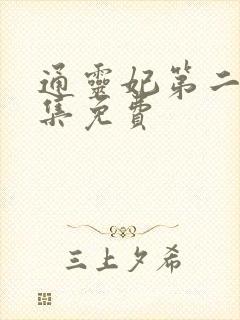 通靈妃第二
集免費
三上夕希